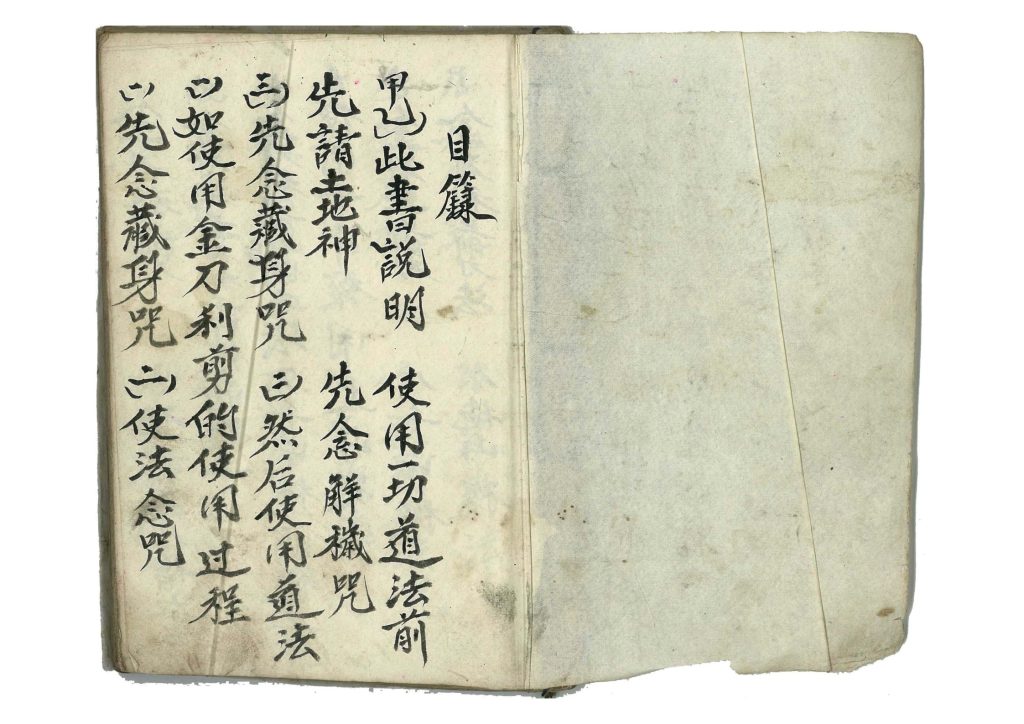 目籙
甲乙)此書説明 使用一切道法前
先請土地神 先念解穢咒
(三)先念藏身咒 (三)然后使用道法
(二)如使用金刀利剪的使用过程
(一)先念藏身咒 (二)使法念咒